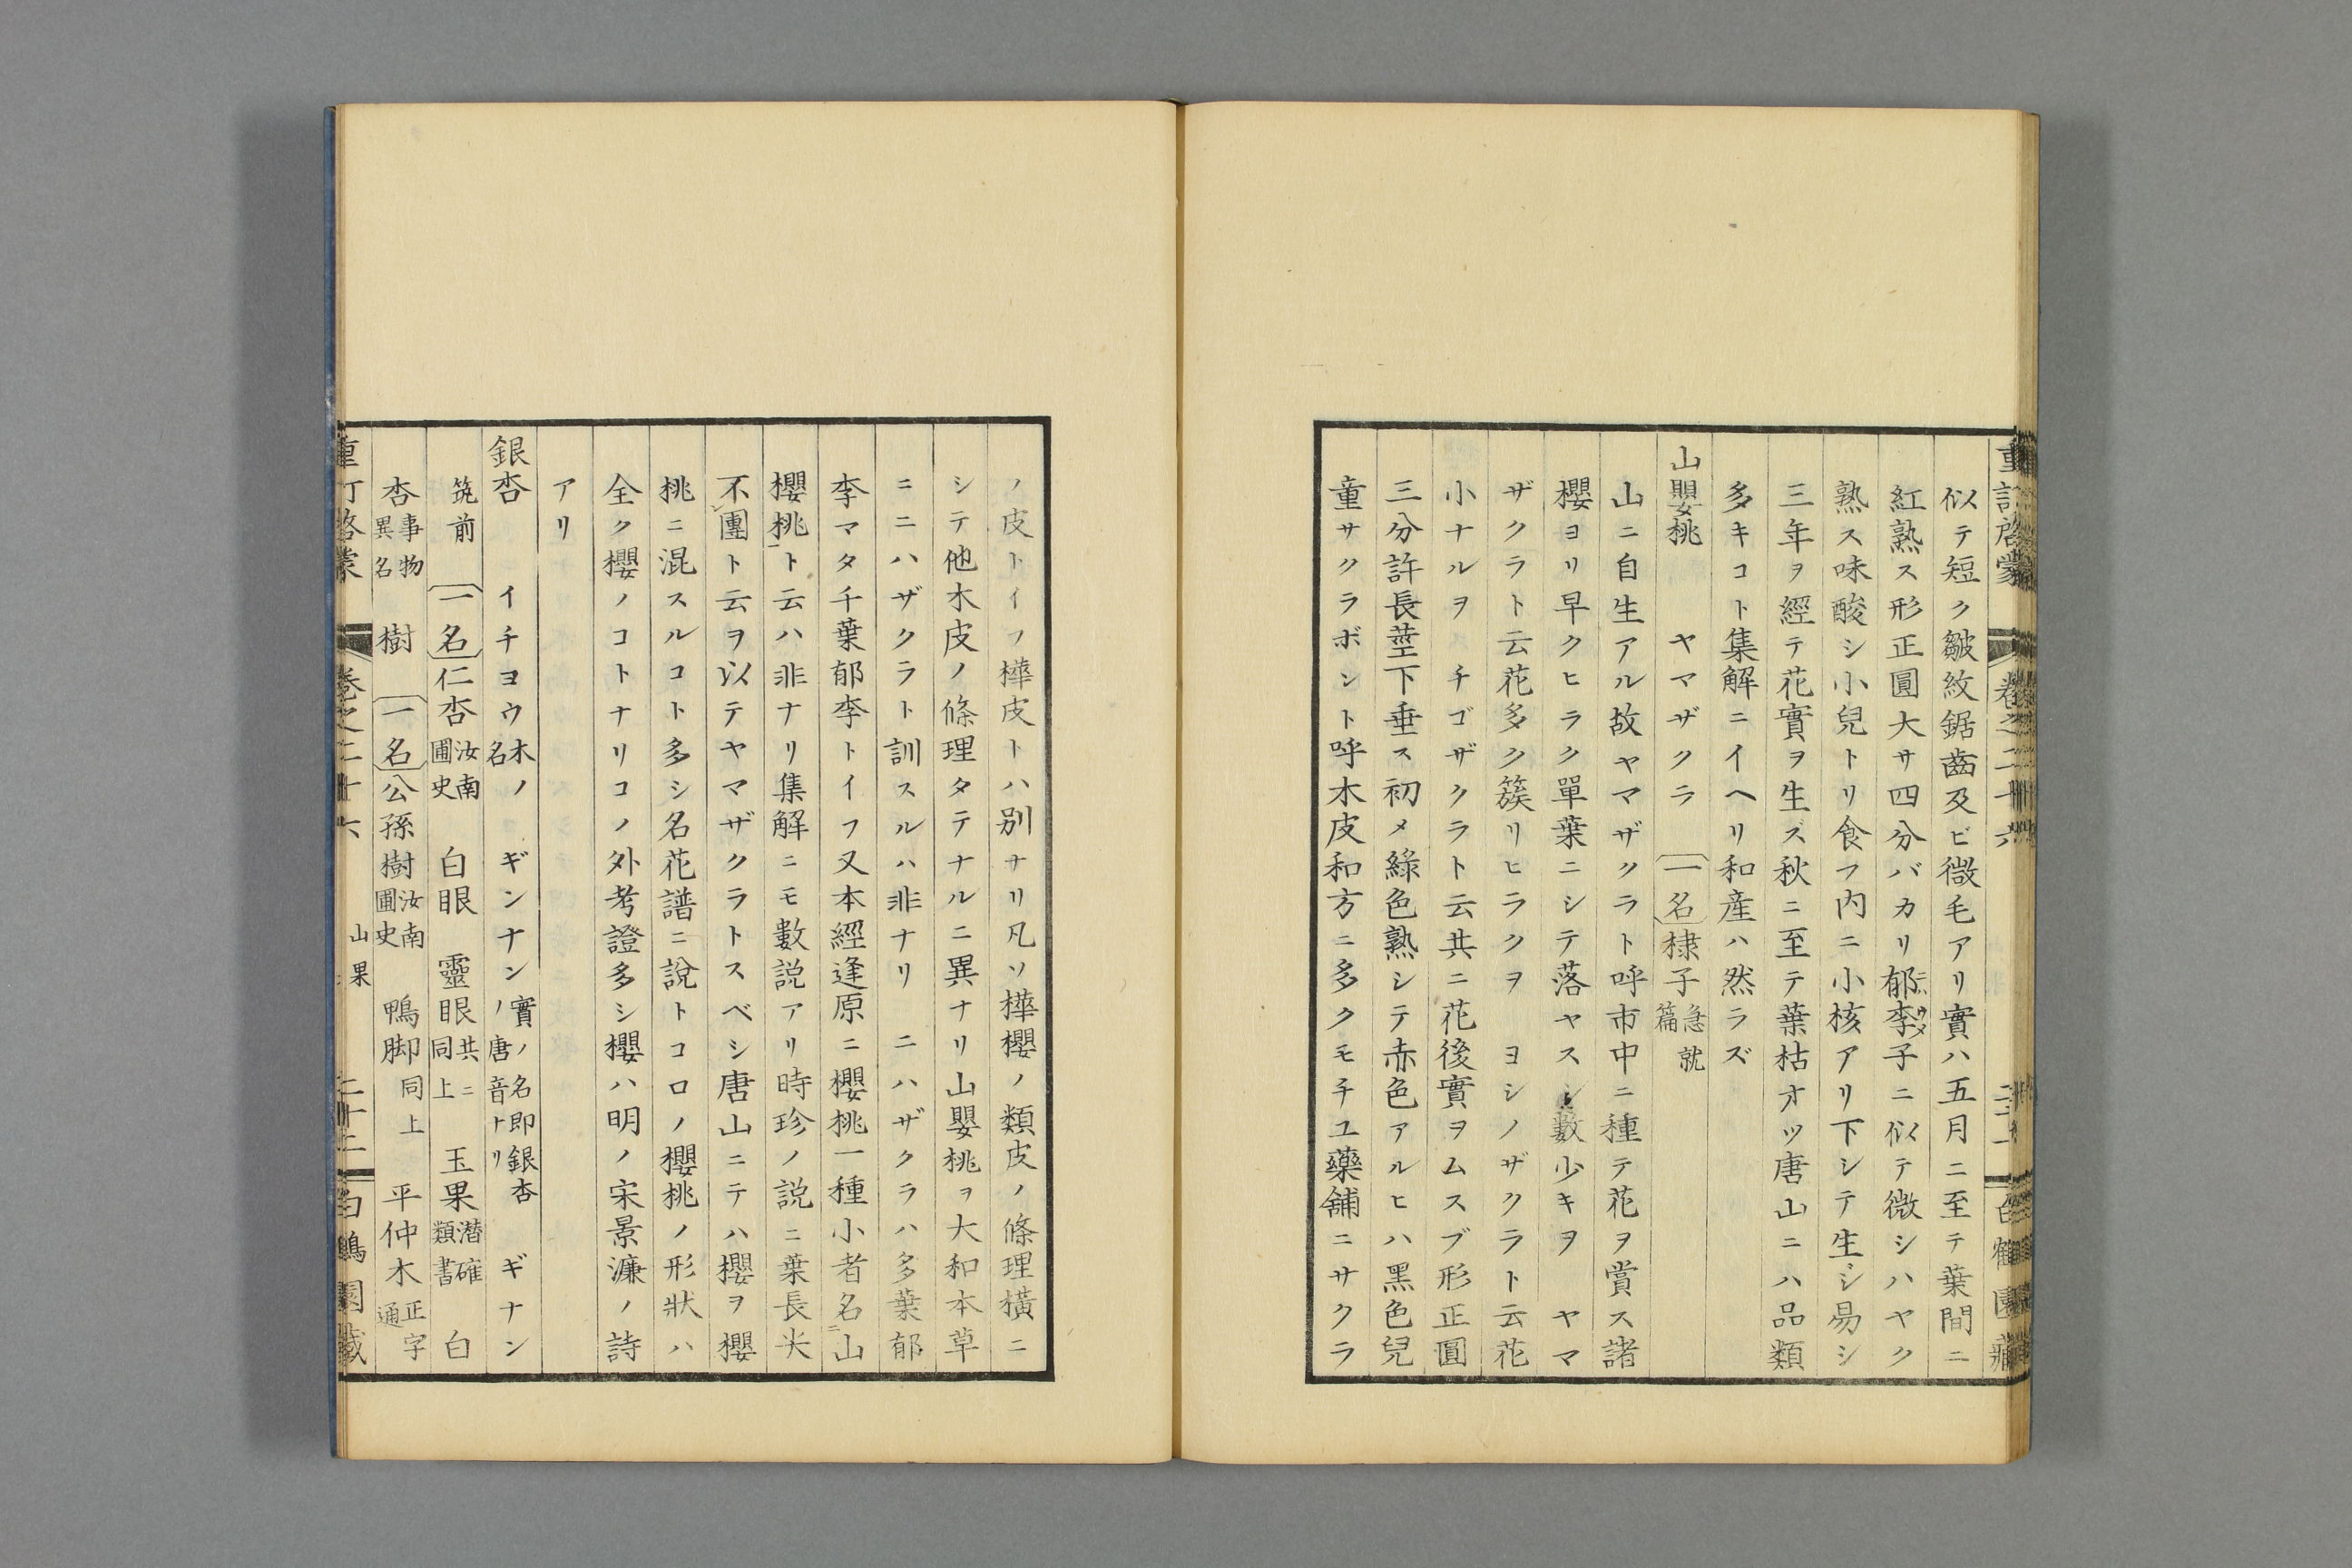 重訂啓蒙 卷之二十六 二十一
似テ短ク皺紋鋸齒及ビ微毛アリ實ハ五月ニ至テ葉間ニ
紅熟ス形正圓大サ四分バカリ郁李子ニ似テ微シハヤク
熟ス味酸シ小兒トリ食フ内ニ小核アリ下シテ生ジ易シ
三年ヲ經テ花實ヲ生ズ秋ニ至テ葉枯オツ唐山ニハ品類
多キコト集解ニイヘリ和產ハ然ラズ
山嬰桃 ヤマザクラ 〔一名〕棣子急就篇
山ニ自生アル故ヤマザクラト呼市中ニ種テ花ヲ賞ス諸
櫻ヨリ早クヒラク單葉ニシテ落ヤスシ數少キヲ ヤマ
ザクラト云花多ク簇リヒラクヲ ヨシノザクラト云花
小ナルヲ チゴザクラト云共ニ花後實ヲムスブ形正圓
三分許長莖下垂ス初メ綠色熟シテ赤色アルヒハ黑色兒
童サクラボント呼木皮和方ニ多クモチユ藥舖ニサクラ
ノ皮トイフ樺皮トハ别ナリ凡ソ樺櫻ノ類皮ノ條理橫ニ
シテ他木皮ノ條理タテナルニ異ナリ山嬰桃ヲ大和本草
ニニハザクラト訓スルハ非ナリ ニハザクラハ多葉郁
李マタ千葉郁李トイフ又本經逢原ニ櫻桃一種小者名山
櫻桃ト云ハ非ナリ集解ニモ數説アリ時珍ノ説ニ葉長尖
不團ト云ヲ以テヤマザクラトスベシ唐山ニテハ櫻ヲ櫻
桃ニ混スルコト多シ名花譜ニ說トコロノ櫻桃ノ形狀ハ
全ク櫻ノコトナリコノ外考證多シ櫻ハ明ノ宋景濂ノ詩
アリ
銀杏 イチヨウ木ノ名 ギンナン實ノ名即銀杏ノ唐音トリ ギナン
筑前 〔一名〕仁杏汝南圃史 白眼 靈眼共ニ同上 玉果潛確類書 白
杏事物異名 樹 〔一名〕公孫樹汝南圃史 鴨脚同上 平仲木正字通
重訂啓蒙 卷之二十六 山果 二十二